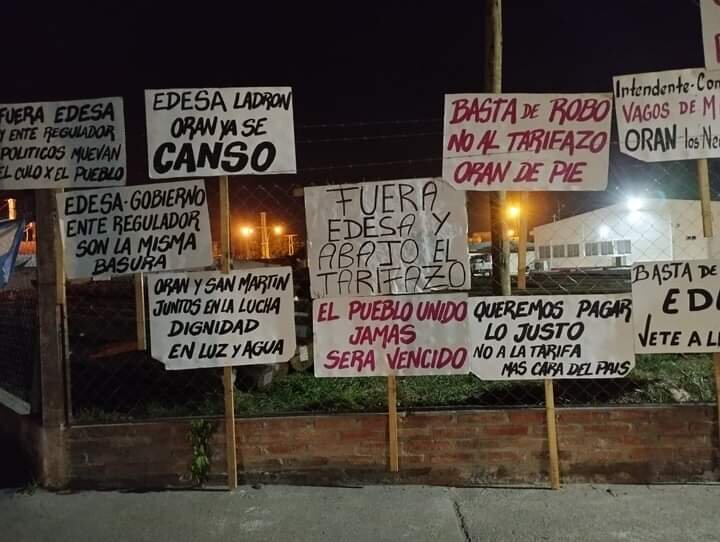 FUERA EDESA
Y ENTE REGULADOR
POLITICOS MUEVAN
EL CULO X EL PUEBLO
EDESA LADRON
ORAN YA SE
CANSO
BASTA DE ROBO
NO AL TARIFAZO
ORAN DE PIE
Intendente-Con
VAGOS DE M
ORAN-los Ne
EDESA-GOBIERNO
ENTE REGULADOR
SON LA MISMA
BASURA
FUERA
EDESA Y
ABATO EL
TARIFAZO
ORAN Y SAN MARTIN
JUNTOS EN LA LUCHA
DIGNIDAD
EN LUZ Y AGUA
EL PUEBLO UNIDO
JAMAS
SERA VENCIDO
QUEREMOS PAGAR
LO JUSTO
NO A LA TARIFA
MAS CARA DEL PAIS
BASTA DE
EDE
VETE A L